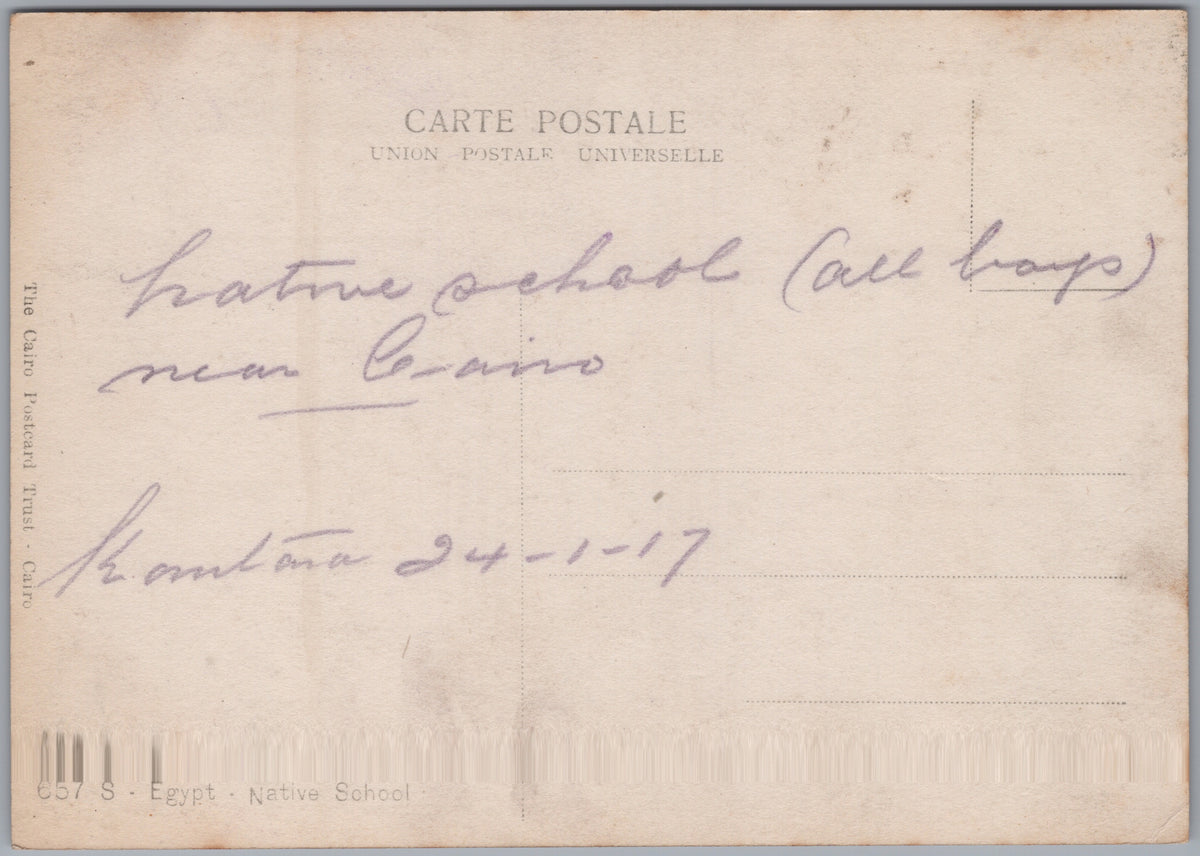 CARTE POSTALE
UNION POSTALE UNIVERSELLE
Native school (all boys)
near Cairo
Kantara 24-1-17
The Cairo Postcard Trust - Cairo
657 S - Egypt - Native School